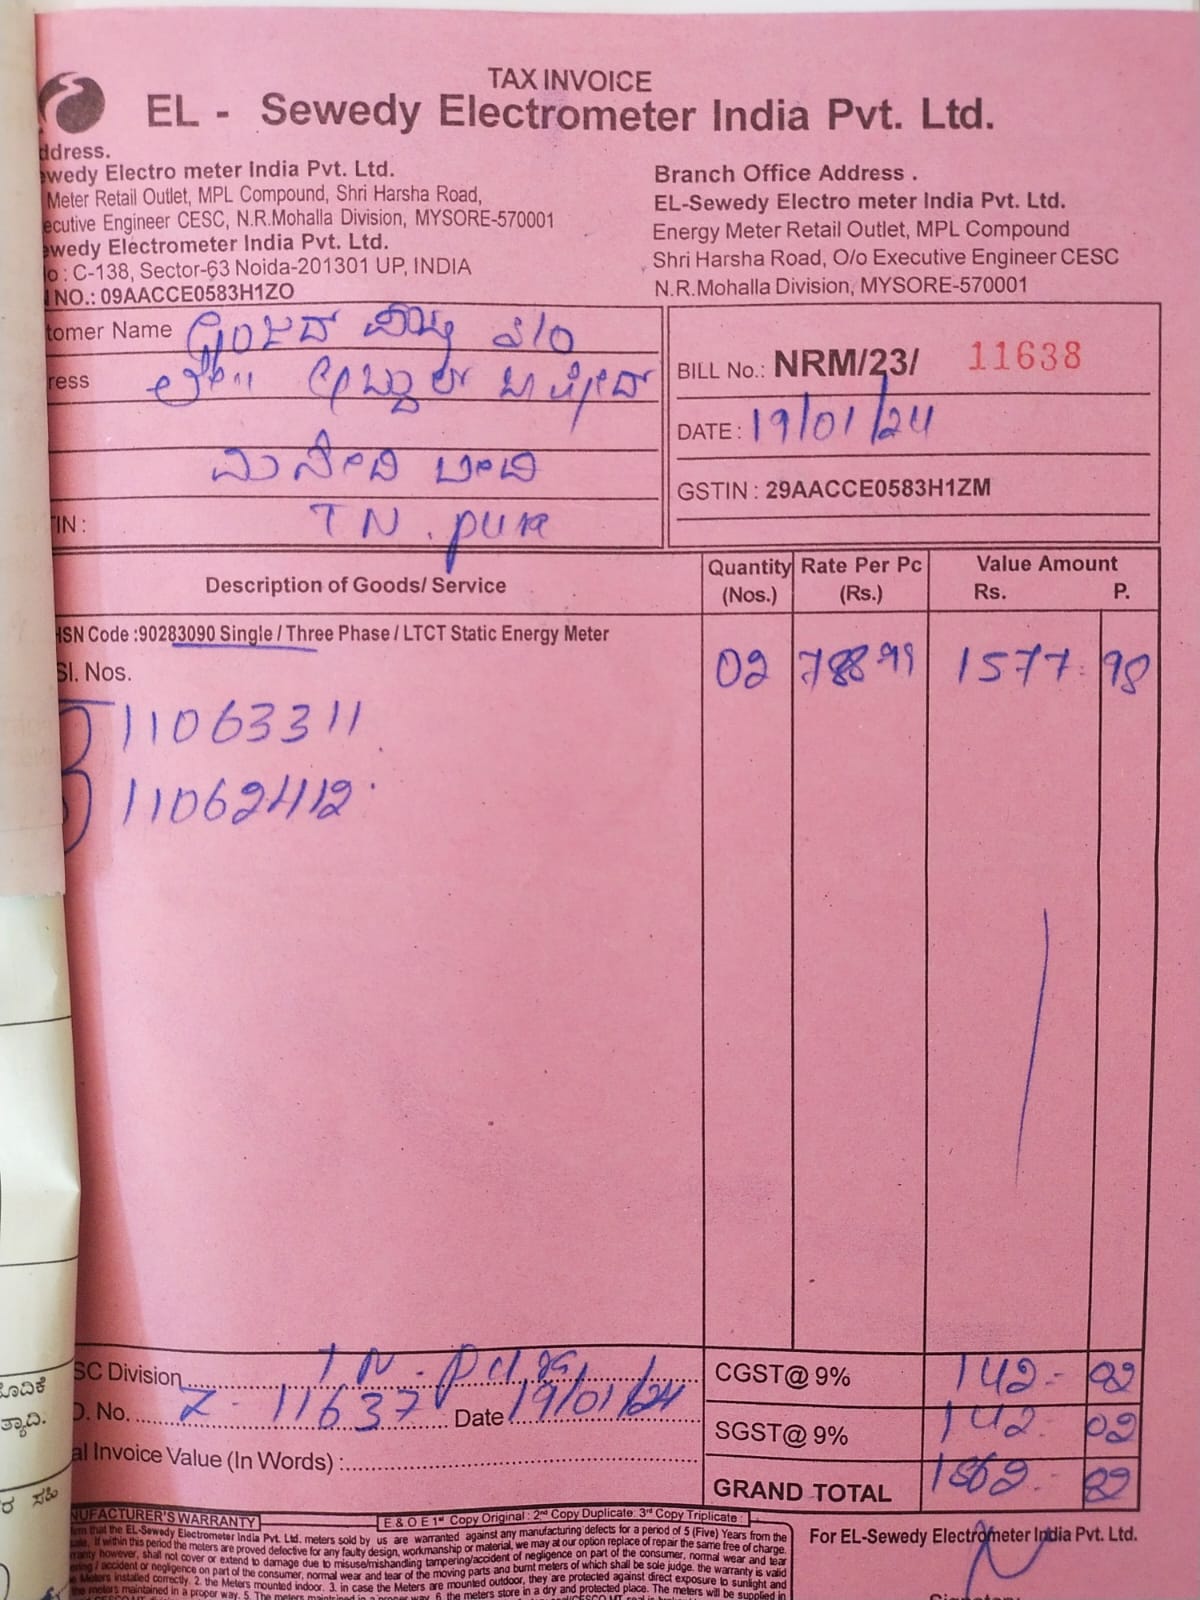 TAX INVOICE
EL - Sewedy Electrometer India Pvt. Ltd.
ddress.
ewedy Electro meter India Pvt. Ltd.
Meter Retail Outlet, MPL Compound, Shri Harsha Road,
ecutive Engineer CESC, N.R.Mohalla Division, MYSORE-570001
ewedy Electrometer India Pvt. Ltd.
o : C-138, Sector-63 Noida-201301 UP, INDIA
NO.: 09AACCE0583H1ZO
Branch Office Address .
EL-Sewedy Electro meter India Pvt. Ltd.
Energy Meter Retail Outlet, MPL Compound
Shri Harsha Road, O/o Executive Engineer CESC
N.R.Mohalla Division, MYSORE-570001
tomer Name
ress
TIN : T N . pura
BILL No.: NRM/23/ 11638
DATE : 19/01/24
GSTIN : 29AACCE0583H1ZM
Description of Goods/ Service Quantity (Nos.) Rate Per Pc (Rs.) Value Amount Rs. P.
HSN Code :90283090 Single / Three Phase / LTCT Static Energy Meter
Sl. Nos. 02 788.99 1577. 98
11063311
11062412
SC Division T N - pura
O. No. 11637 Date 19/01/24
al Invoice Value (In Words) :
CGST@ 9% 142.- 02
SGST@ 9% 142.- 02
GRAND TOTAL 1862.- 02
NUFACTURER'S WARRANTY E & O E 1st Copy Original : 2nd Copy Duplicate. 3rd Copy Triplicate :
firm that the EL-Sewedy Electrometer India Pvt. Ltd. meters sold by us are warranted against any manufacturing defects for a period of 5 (Five) Years from the
sale. If within this period the meters are proved defective for any faulty design, workmanship or material, we may at our option replace of repair the same free of charge.
rranty however, shall not cover or extend to damage due to misuse/mishandling tampering/accident of negligence on part of the consumer, normal wear and tear
ering / accident or negligence on part of the consumer, normal wear and tear of the moving parts and burnt meters of which shall be sole judge. the warranty is valid
Meters installed correctly. 2. the Meters mounted indoor. 3. in case the Meters are mounted outdoor, they are protected against direct exposure to sunlight and
the meters maintained in a proper way. 5.
For EL-Sewedy Electrometer India Pvt. Ltd.